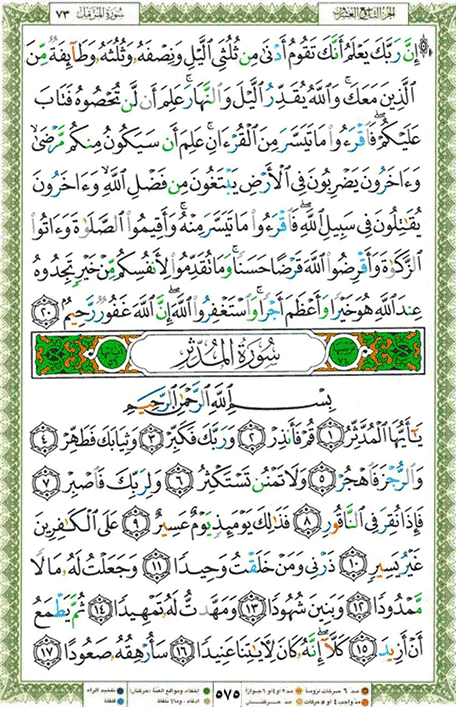 سُورَةُ المُزَّمِّل ٧٣
الجزء التاسع والعشرون
۞ إِنَّ رَبَّكَ يَعْلَمُ أَنَّكَ تَقُومُ أَدْنَىٰ مِن ثُلُثَيِ ٱلَّيْلِ وَنِصْفَهُۥ وَثُلُثَهُۥ وَطَآئِفَةٌ مِّنَ
ٱلَّذِينَ مَعَكَ ۚ وَٱللَّهُ يُقَدِّرُ ٱلَّيْلَ وَٱلنَّهَارَ ۚ عَلِمَ أَن لَّن تُحْصُوهُ فَتَابَ
عَلَيْكُمْ ۖ فَٱقْرَءُوا۟ مَا تَيَسَّرَ مِنَ ٱلْقُرْءَانِ ۚ عَلِمَ أَن سَيَكُونُ مِنكُم مَّرْضَىٰ ۙ
وَءَاخَرُونَ يَضْرِبُونَ فِى ٱلْأَرْضِ يَبْتَغُونَ مِن فَضْلِ ٱللَّهِ ۙ وَءَاخَرُونَ
يُقَـٰتِلُونَ فِى سَبِيلِ ٱللَّهِ ۖ فَٱقْرَءُوا۟ مَا تَيَسَّرَ مِنْهُ ۚ وَأَقِيمُوا۟ ٱلصَّلَوٰةَ وَءَاتُوا۟
ٱلزَّكَوٰةَ وَأَقْرِضُوا۟ ٱللَّهَ قَرْضًا حَسَنًا ۚ وَمَا تُقَدِّمُوا۟ لِأَنفُسِكُم مِّنْ خَيْرٍ تَجِدُوهُ
عِندَ ٱللَّهِ هُوَ خَيْرًا وَأَعْظَمَ أَجْرًا ۚ وَٱسْتَغْفِرُوا۟ ٱللَّهَ ۖ إِنَّ ٱللَّهَ غَفُورٌ رَّحِيمٌۢ ٢٠
سُورَةُ المُدَّثِّرِ
بِسْمِ ٱللَّهِ ٱلرَّحْمَـٰنِ ٱلرَّحِيمِ
يَـٰٓأَيُّهَا ٱلْمُدَّثِّرُ ١ قُمْ فَأَنذِرْ ٢ وَرَبَّكَ فَكَبِّرْ ٣ وَثِيَابَكَ فَطَهِّرْ ٤
وَٱلرُّجْزَ فَٱهْجُرْ ٥ وَلَا تَمْنُن تَسْتَكْثِرُ ٦ وَلِرَبِّكَ فَٱصْبِرْ ٧
فَإِذَا نُقِرَ فِى ٱلنَّاقُورِ ٨ فَذَٰلِكَ يَوْمَئِذٍ يَوْمٌ عَسِيرٌ ٩ عَلَى ٱلْكَـٰفِرِينَ
غَيْرُ يَسِيرٍ ١٠ ذَرْنِى وَمَنْ خَلَقْتُ وَحِيدًا ١١ وَجَعَلْتُ لَهُۥ مَالًا
مَّمْدُودًا ١٢ وَبَنِينَ شُهُودًا ١٣ وَمَهَّدتُّ لَهُۥ تَمْهِيدًا ١٤ ثُمَّ يَطْمَعُ
أَنْ أَزِيدَ ١٥ كَلَّآ ۖ إِنَّهُۥ كَانَ لِـَٔايَـٰتِنَا عَنِيدًا ١٦ سَأُرْهِقُهُۥ صَعُودًا ١٧
مد ٦ حركات لزوماً مد ٢ أو ٤ أو ٦ جوازاً
مد واجب ٤ أو ٥ حركات مد حركتان
٥٧٥
إخفاء، ومواقع الغنة (حركتان) تفخيم الراء
ادغام، وما لا يلفظ قلقلة